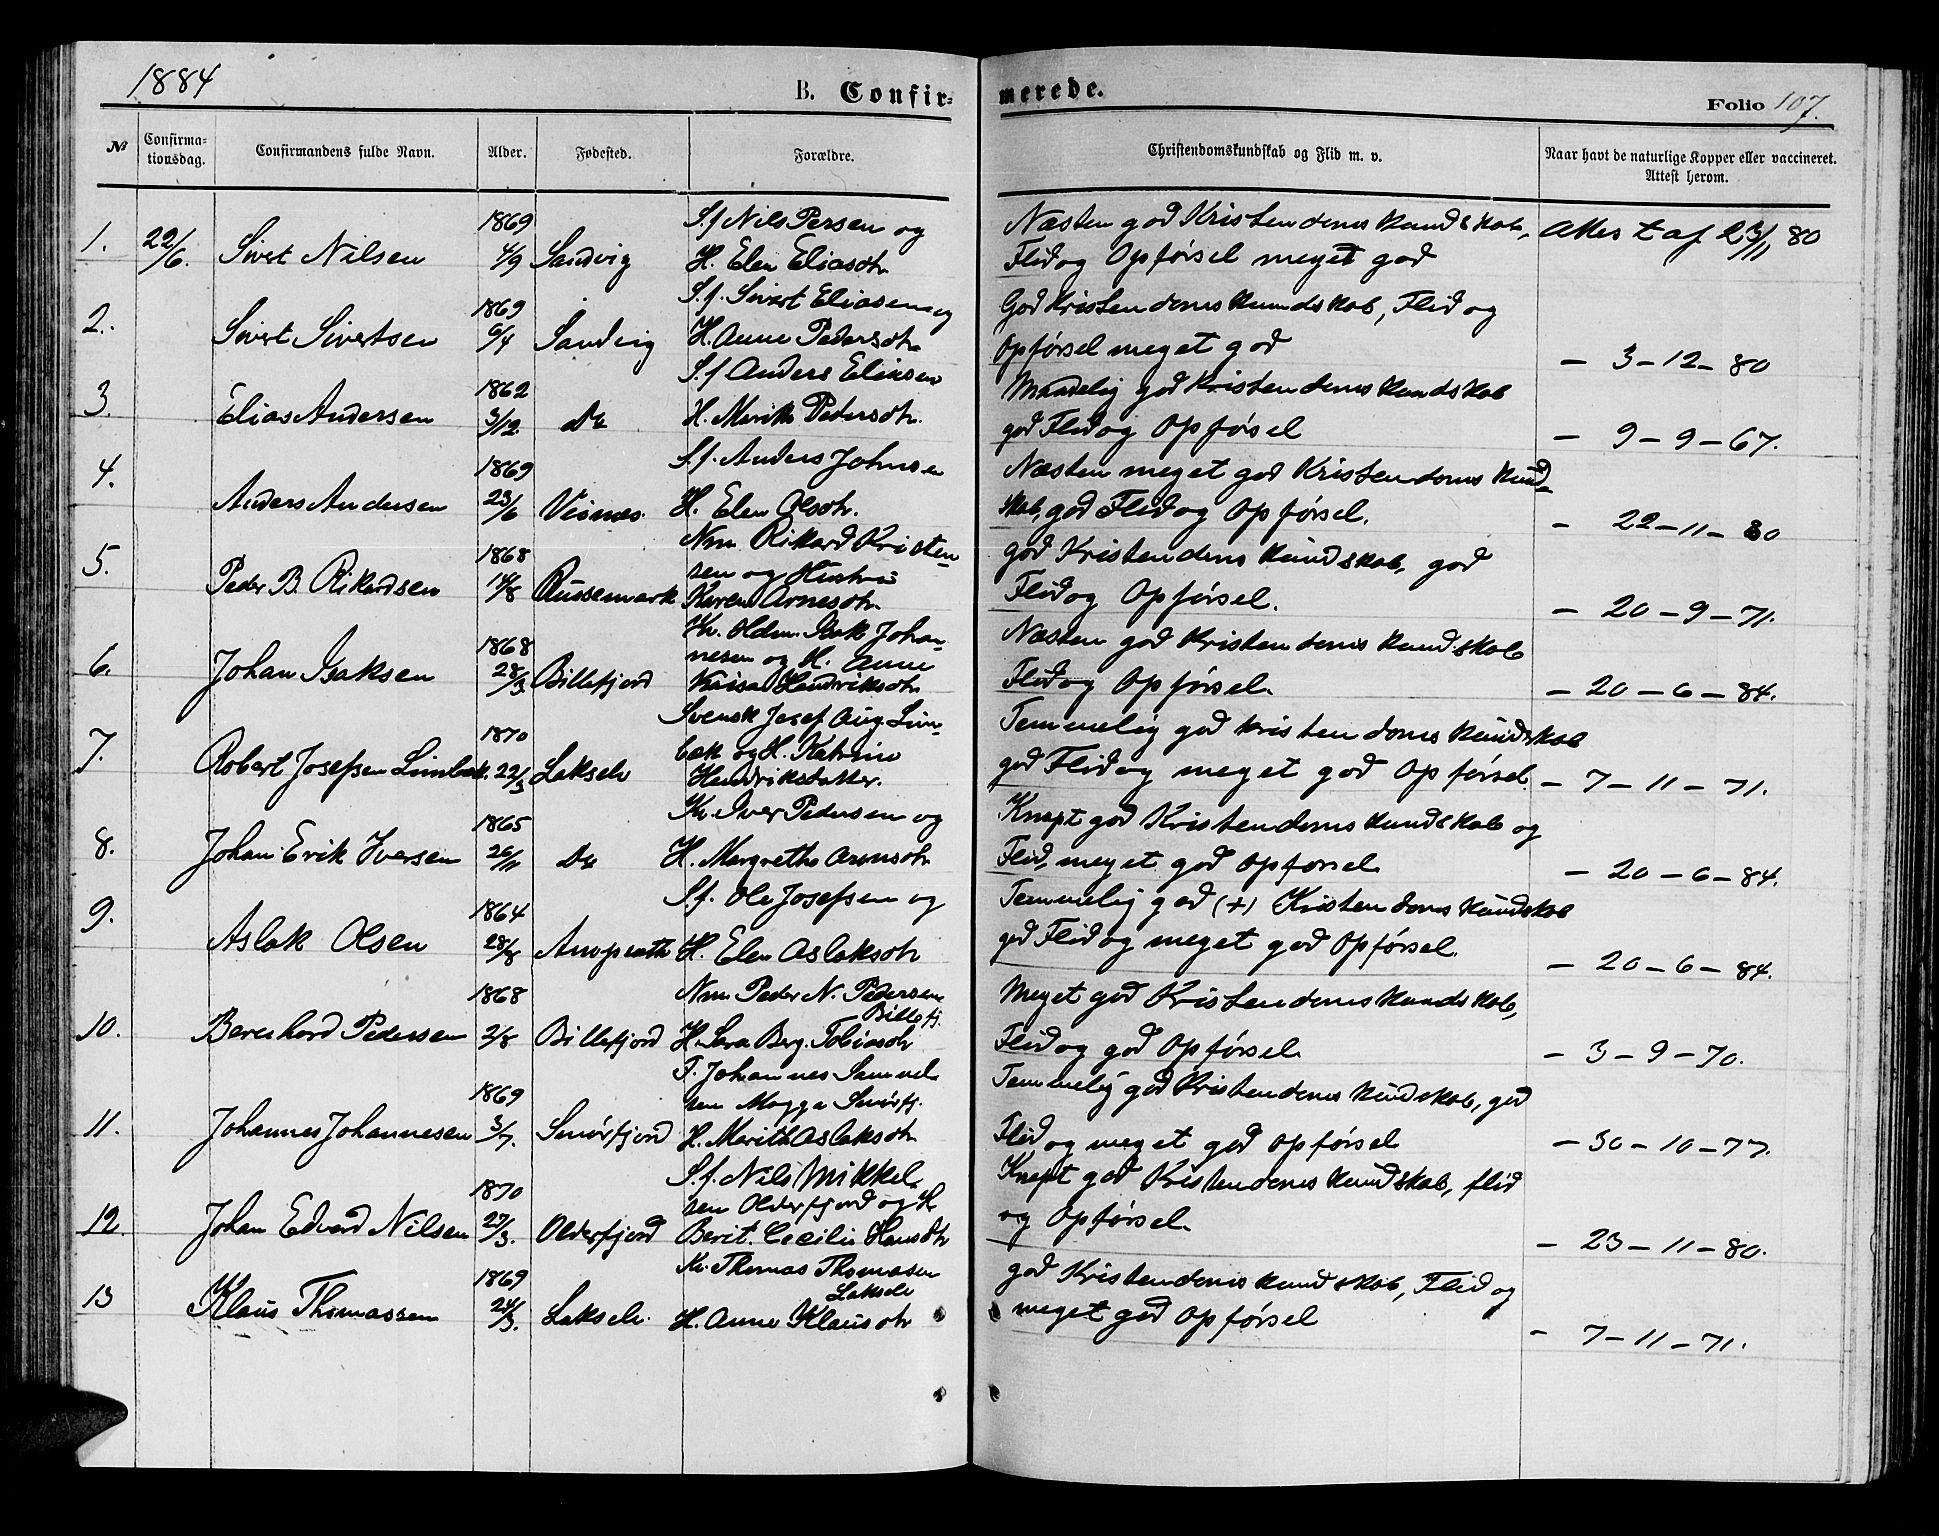 1884
B. Confir-
merede.
Folio 107.
No
Confirma-
tionsdag.
Confirmandens fulde Navn.
Alder.
Fødested.
Forældre.
Christendomskundskab og Flid m. v.
Naar havt de naturlige Kopper eller vaccineret.
Attest herom.
1. 22/6. Sivert Nilsen 1869 4/9 Sandvig
S.f Nils Persen og
H. Elen Eliasdtr
Næsten god Kristendomskundskab,
Flid og Opførsel meget god
Attest af 23/11 80
2. Sivert Sivertsen 1869 6/4 Sandvig
S.f. Sivert Eliasen og
H. Anne Pedersdtr
God Kristendomskundskab, Flid og
Opførsel meget god
- 3-12-80
3 Elias Andersen 1862 3/12. Do
S.f Anders Eliasen
H. Marith Pedersdtr.
Maadelig god Kristendomskundskab
god Flid og Opførsel
- 9-9-67.
4. Anders Andersen 1869 23/6 Visnæs
S.f. Anders Johnsen
H. Elen Olsdtr.
Næsten meget god Kristendomskund-
skab, god Flid og Opførsel.
- 22-11-80
5. Peder B. Rikardsen 1868 14/8 Russemark
Nm. Rikard Kristen-
sen og Hustru
Karen Arnesdtr.
god Kristendomskundskab, god
Flid og Opførsel.
- 20-9-71.
6. Johan Isaksen 1868 28/3 Billefjord
Kv. Oldm. Isak Johan-
nesen og H. Anne
Kaisa Hendriksdtr
Næsten god Kristendomskundskab
Flid og Opførsel
- 20-6-84.
7. Robert Josefsen Limbæk. 1870 22/3 Lakselv
Svensk Josef Aug. Lim-
bæk og H. Katrine
Hendriksdatter.
Temmelig god kristendomskundskab
god Flid og meget god Opførsel
- 7-11-71.
8. Johan Erik Iversen 1865 26/11 Do
Kv. Iver Pedersen og
H. Margrethe Aronsdtr
Knapt god Kristendomskundskab og
Flid, meget god Opførsel
- 20-6-84.
9. Aslak Olsen 1864 28/8
S.f. Ole Josefsen og
H. Elen Aslaksdtr
Temmelig god (+) Kristendomskundskab
god Flid og meget god Opførsel
- 20-6-84.
10. Bernhard Pedersen 1868 2/8 Billefjord
Nm. Peder N. Pedersen
Billefj.
H. Sara Berg. Tobiasdtr
Meget god Kristendomskundskab,
Flid og god Opførsel
- 3-9-70.
11. Johannes Johannesen 1869 3/7. Smørfjord
F. Johannes Samuel-
sen Magga Smørfj.
H. Marith Aslaksdtr
Temmelig god Kristendomskundskab, god
Flid og meget god Opførsel
- 30-10-77.
12. Johan Edvard Nilsen 1870 27/3. Olderfjord
S.f. Nils Mikkel-
sen Olderfjord og H
Berit Cecilie Hansdtr
Knapt god Kristendomskundskab, flid
og Opførsel
- 23-11-80.
13 Klaus Thomassen 1869 24/3. Lakselv.
Kv. Thomas Thomasen
Lakselv
H. Anne Klausdtr
god Kristendomskundskab, Flid og
meget god Opførsel
- 7-11-71.